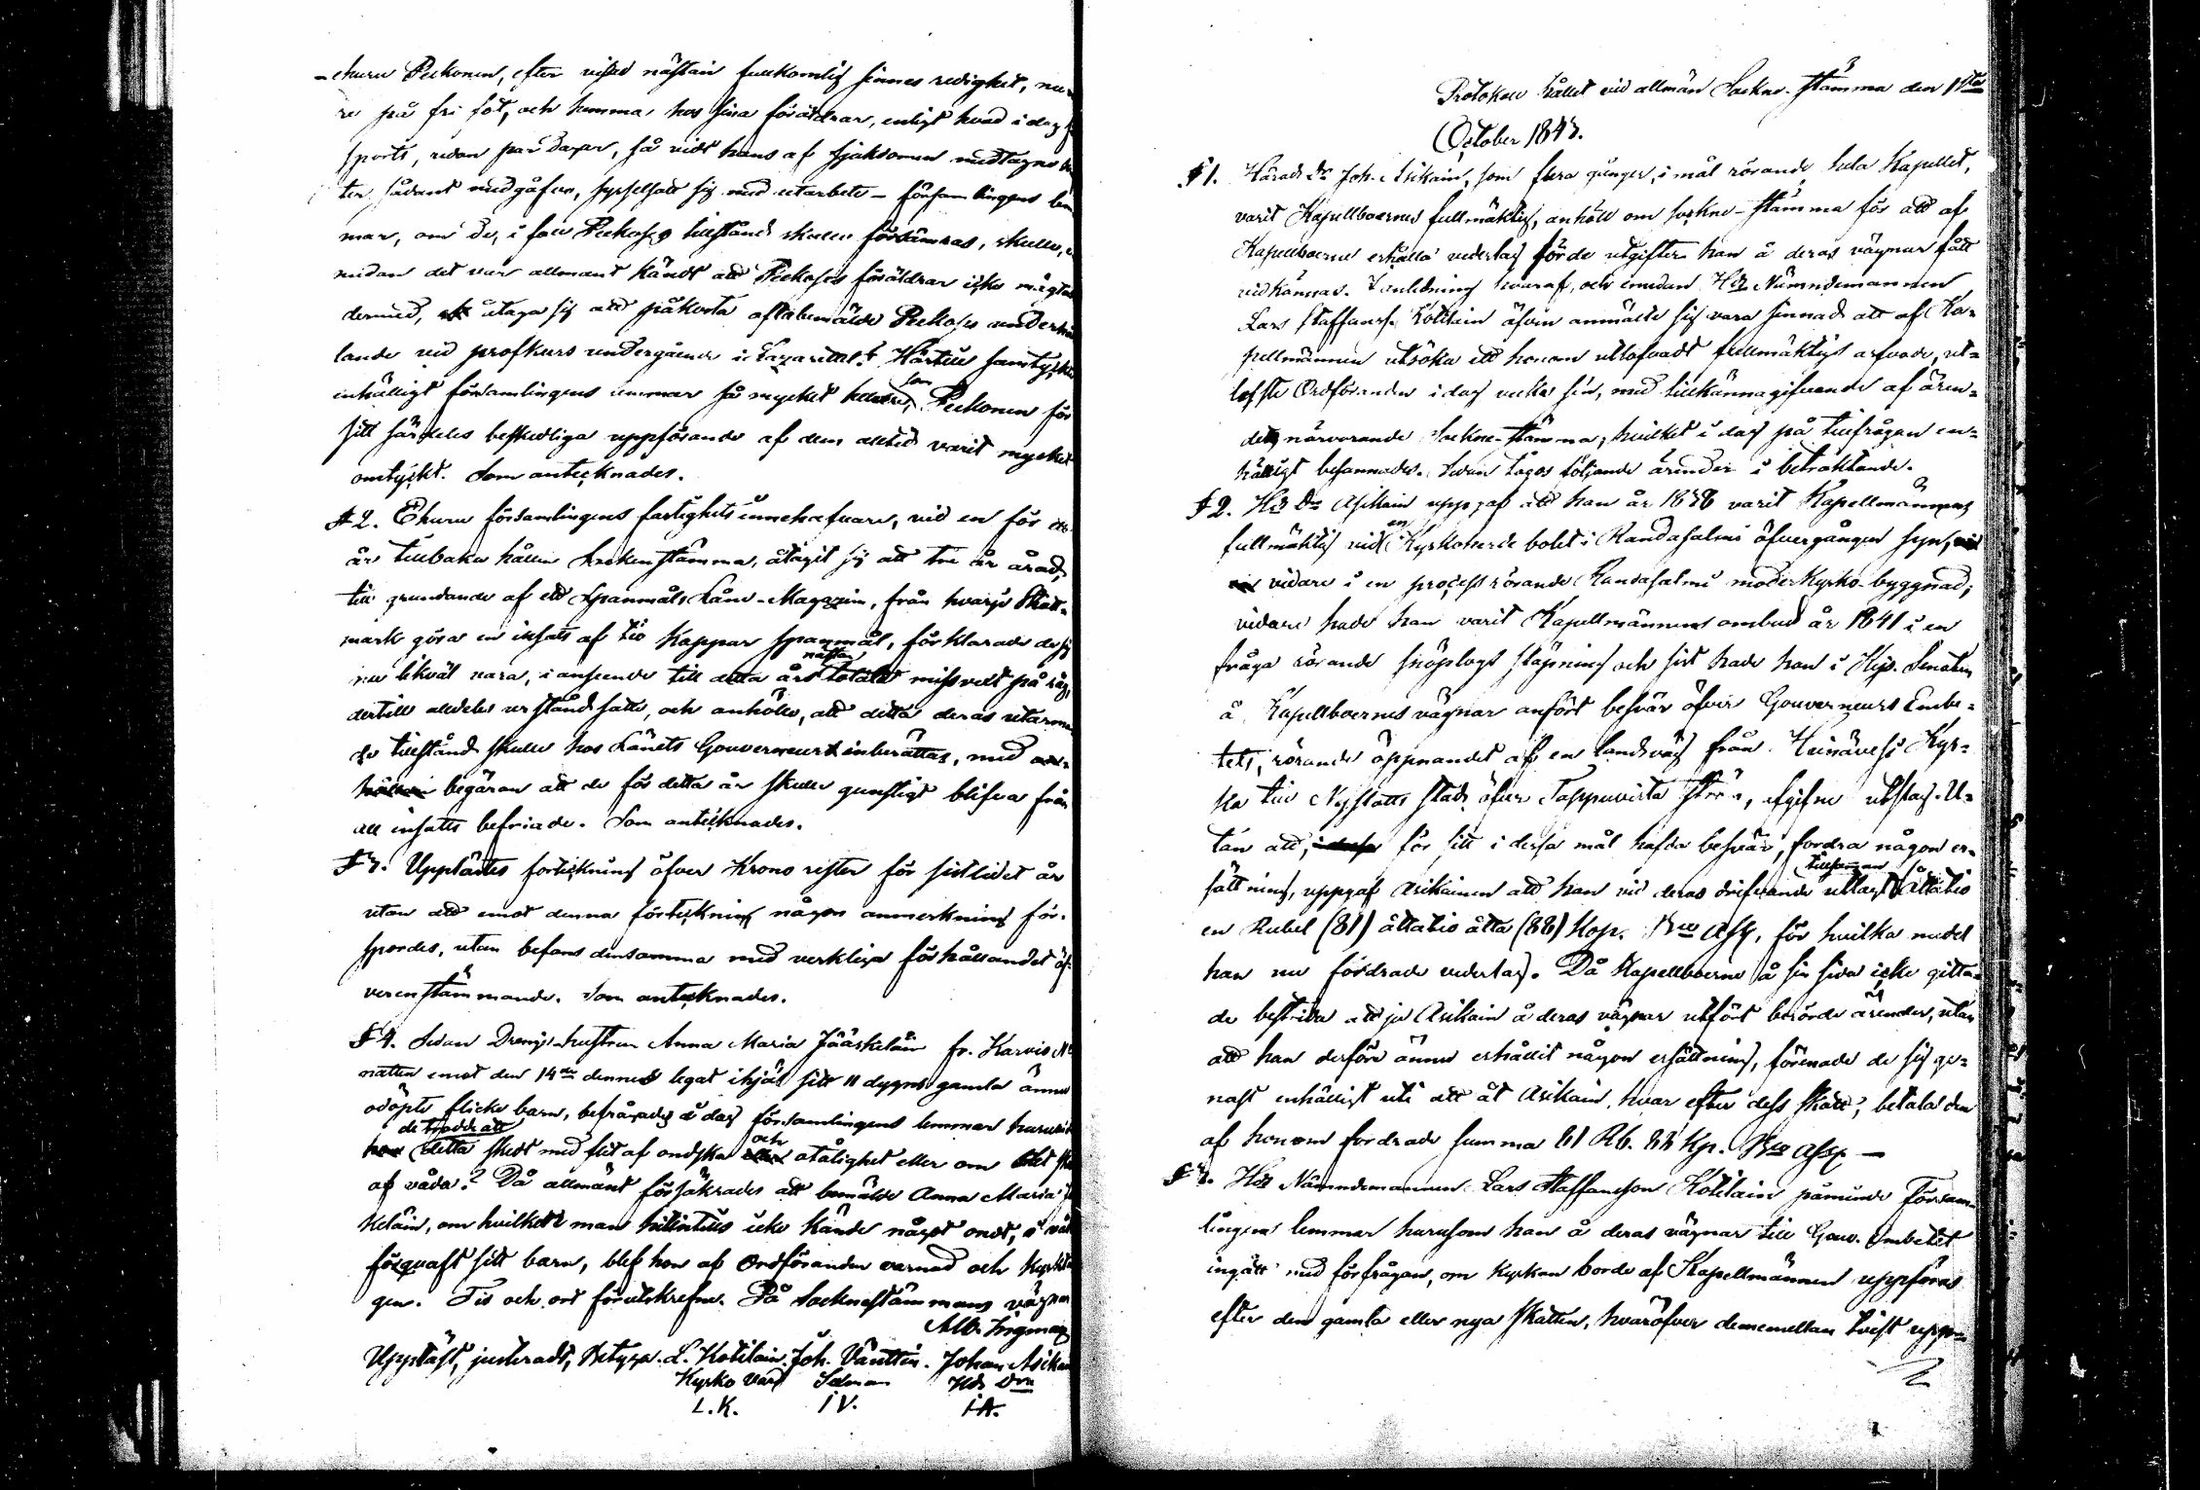 -ehuru Pekonen, efter visad nästan fullkomlig sinnes redighet, nu
på fri fot, och hemma, hos sina föräldrar, enligt hvad i dag
sports, redan par dagar, så vidt hans af sjukdomen medtagne
ter sådant medgåfvo, sysselsatt sig med utarbete - församlingens lem
mar, om de, i fall Pekoses tillstånd skulle försämras, skulle,
medan det var allmänt kändt att Pekoses föräldrar icke mägta
dermed, åtaga sig att påkosta oftabemälde Pekoses underhål
lande vid profkurs undergående i Lazarettet? Härtill samtyckte
enhälligt församlingens lemmar så mycket hellre, som Pekonen för
sitt särdeles beskedliga uppförande af dem alltid varit mycket
omtyckt. Som antecknades.
§ 2. Ehuru församlingens fastighets innehafvare, vid en för
år tillbaka hållen Sockenstämma, åtagit sig att tre år årad,
till grundande af ett Spanmåls Låne-Magazin, från hvarje Skatt-
mark göra en insatts af tio kappar spanmål, förklarade de sig
nu likväl vara, i anseende till detta års nästan totala missvext på råg,
dertill alldeles urståndsatte, och anhöllo, att detta deras utarma
de tillstånd skulle hos Länets Gouverneur inberättas, med
begäran att de för detta år skulle gunstigt blifva från
all insatts befriade. Som antecknades.
§ 3. Upplästes förteckning öfver Krono rester för sistlidet år
utan att emot denna förteckning någon anmerkning för-
spordes, utan befans densamma med verkliga förhållandet öf-
verenstämmande. Som antecknades.
§ 4. Sedan Drengs hustrun Anna Maria Jääskeläin fr. Karvio
natten emot den 14de dennes legat ihjäl sitt 11 dygns gamla ännu
odöpte flicke barn, befrågades i dag församlingens lemmar huruvida
de trodde att detta skedt med flit af ondska och otålighet eller om det
af våda? Då allmänt försäkrades att bemälde Anna Maria
keläin, om hvilken man hittintills icke kände något ondt, i
förqvaft sitt barn, blef hon af Ordföranden varnad och
gen. Tid och ort förutskrefne. På Sockenstämmans vägnar
Alb. Ingman
Uppläst, justeradt, betyga. L. Kotilain. Joh. Vänttin. Johan Asikain
Kyrko värd
L. K. I V. I A.
Protokoll hållet vid allmän Sockne-stämma den 1sta
October 1843.
§ 1. Joh. Asikain, som flera gånger, i mål rörande hela Kapellet,
varit Kapellboernes fullmäktig, anhöll om sockne-stämma för att af
Kapellboerne erhålla vederlag för de utgifter han å deras vägnar fått
vidkännas. I anledning hvaraf, och emedan Nämndemannen
Lars Staffanss. Kotilain äfven anmälte sig vara sinnad att af Ka-
pellmännen utsöka ett honom utlofvadt fullmäktigs arfvode, ut-
lyste Ordföranden i dag vecka sen, med tillkännagifvande af ären-
det, närvarande Sockne-stämma, hvilket i dag på tillfrågan en-
hälligt besannades. Sedan togos följande ärender i betraktande.
§ 2. Asikain uppgaf att han år 1838 varit Kapellmännens
fullmäktig vid en Kyrkoherde bolet i Randasalmi öfvergången syn,
vidare i en process rörande Randasalmi moderkyrko-byggnad;
vidare hade han varit Kapellmännens ombud år 1841 i en
fråga rörande snöplogs släpning och sist hade han i Kejs. Senaten
å Kapellboernes vägnar anfört besvär öfver Gouverneurs Embe-
tets, rörande öppnandet af en landsväg från Heinävesi Kyr-
ka till Nyslotts stad öfver Tappuvirta ström, afgifne utslag. U-
tan att, för sitt i dessa mål hafda besvär, fordra någon er-
sättning, uppgaf Asikainen att han vid deras drifvande utlagt tillsamman åttatio
en Rubel (81) åttatio åtta (88) Kop. Bco Assg. för hvilka medel
han nu fordrade vederlag. Då Kapellboerne å sin sida icke gitta-
de bestrida att ju Asikain å deras vägnar utfört berörde ärender, utan
att han derföre ännu erhållit någon ersättning, förenade de sig ge-
nast enhälligt uti att åt Asikain, hvar efter dess skatt, betala den
af honom fordrade summa 81 Rb. 88 Kp. Bco Assg. —
§ 3. Nämndemannen Lars Staffansson Kotilain påminde Försam-
lingens lemmar hurusom han å deras vägnar till Gouv. Embetet
ingått med förfrågan, om Kyrkan borde af Kapellmännen uppföras
efter den gamla eller nya skatten, hvaröfver dememellan tvist upp-